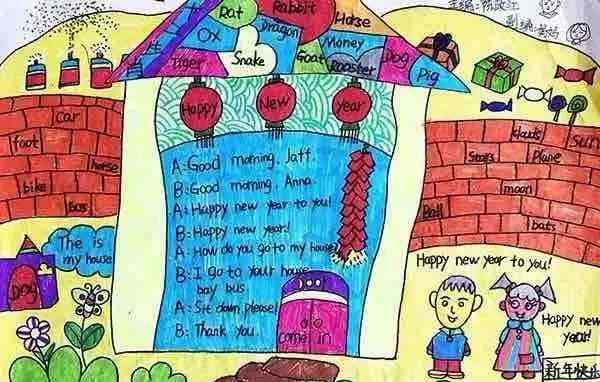 Rat
Rabbit
Horse
Ox
Dragon
Money
Dog
Tiger
Snake
Goat
Roaster
Pig
Happy
New
year
car
foot
horse
bike
bus
clouds
sun
Stars
Plane
moon
Ball
bats
A: Good morning, Jaff.
B: Good morning, Anna.
A: Happy new year to you!
B: Happy new year!
A: How do you go to my house
B: I go to your house
bay bus.
A: Sit down, please!
B: Thank you.
come in
The is
my house
Dog
Happy new year to you!
Happy new
year!
新年快乐